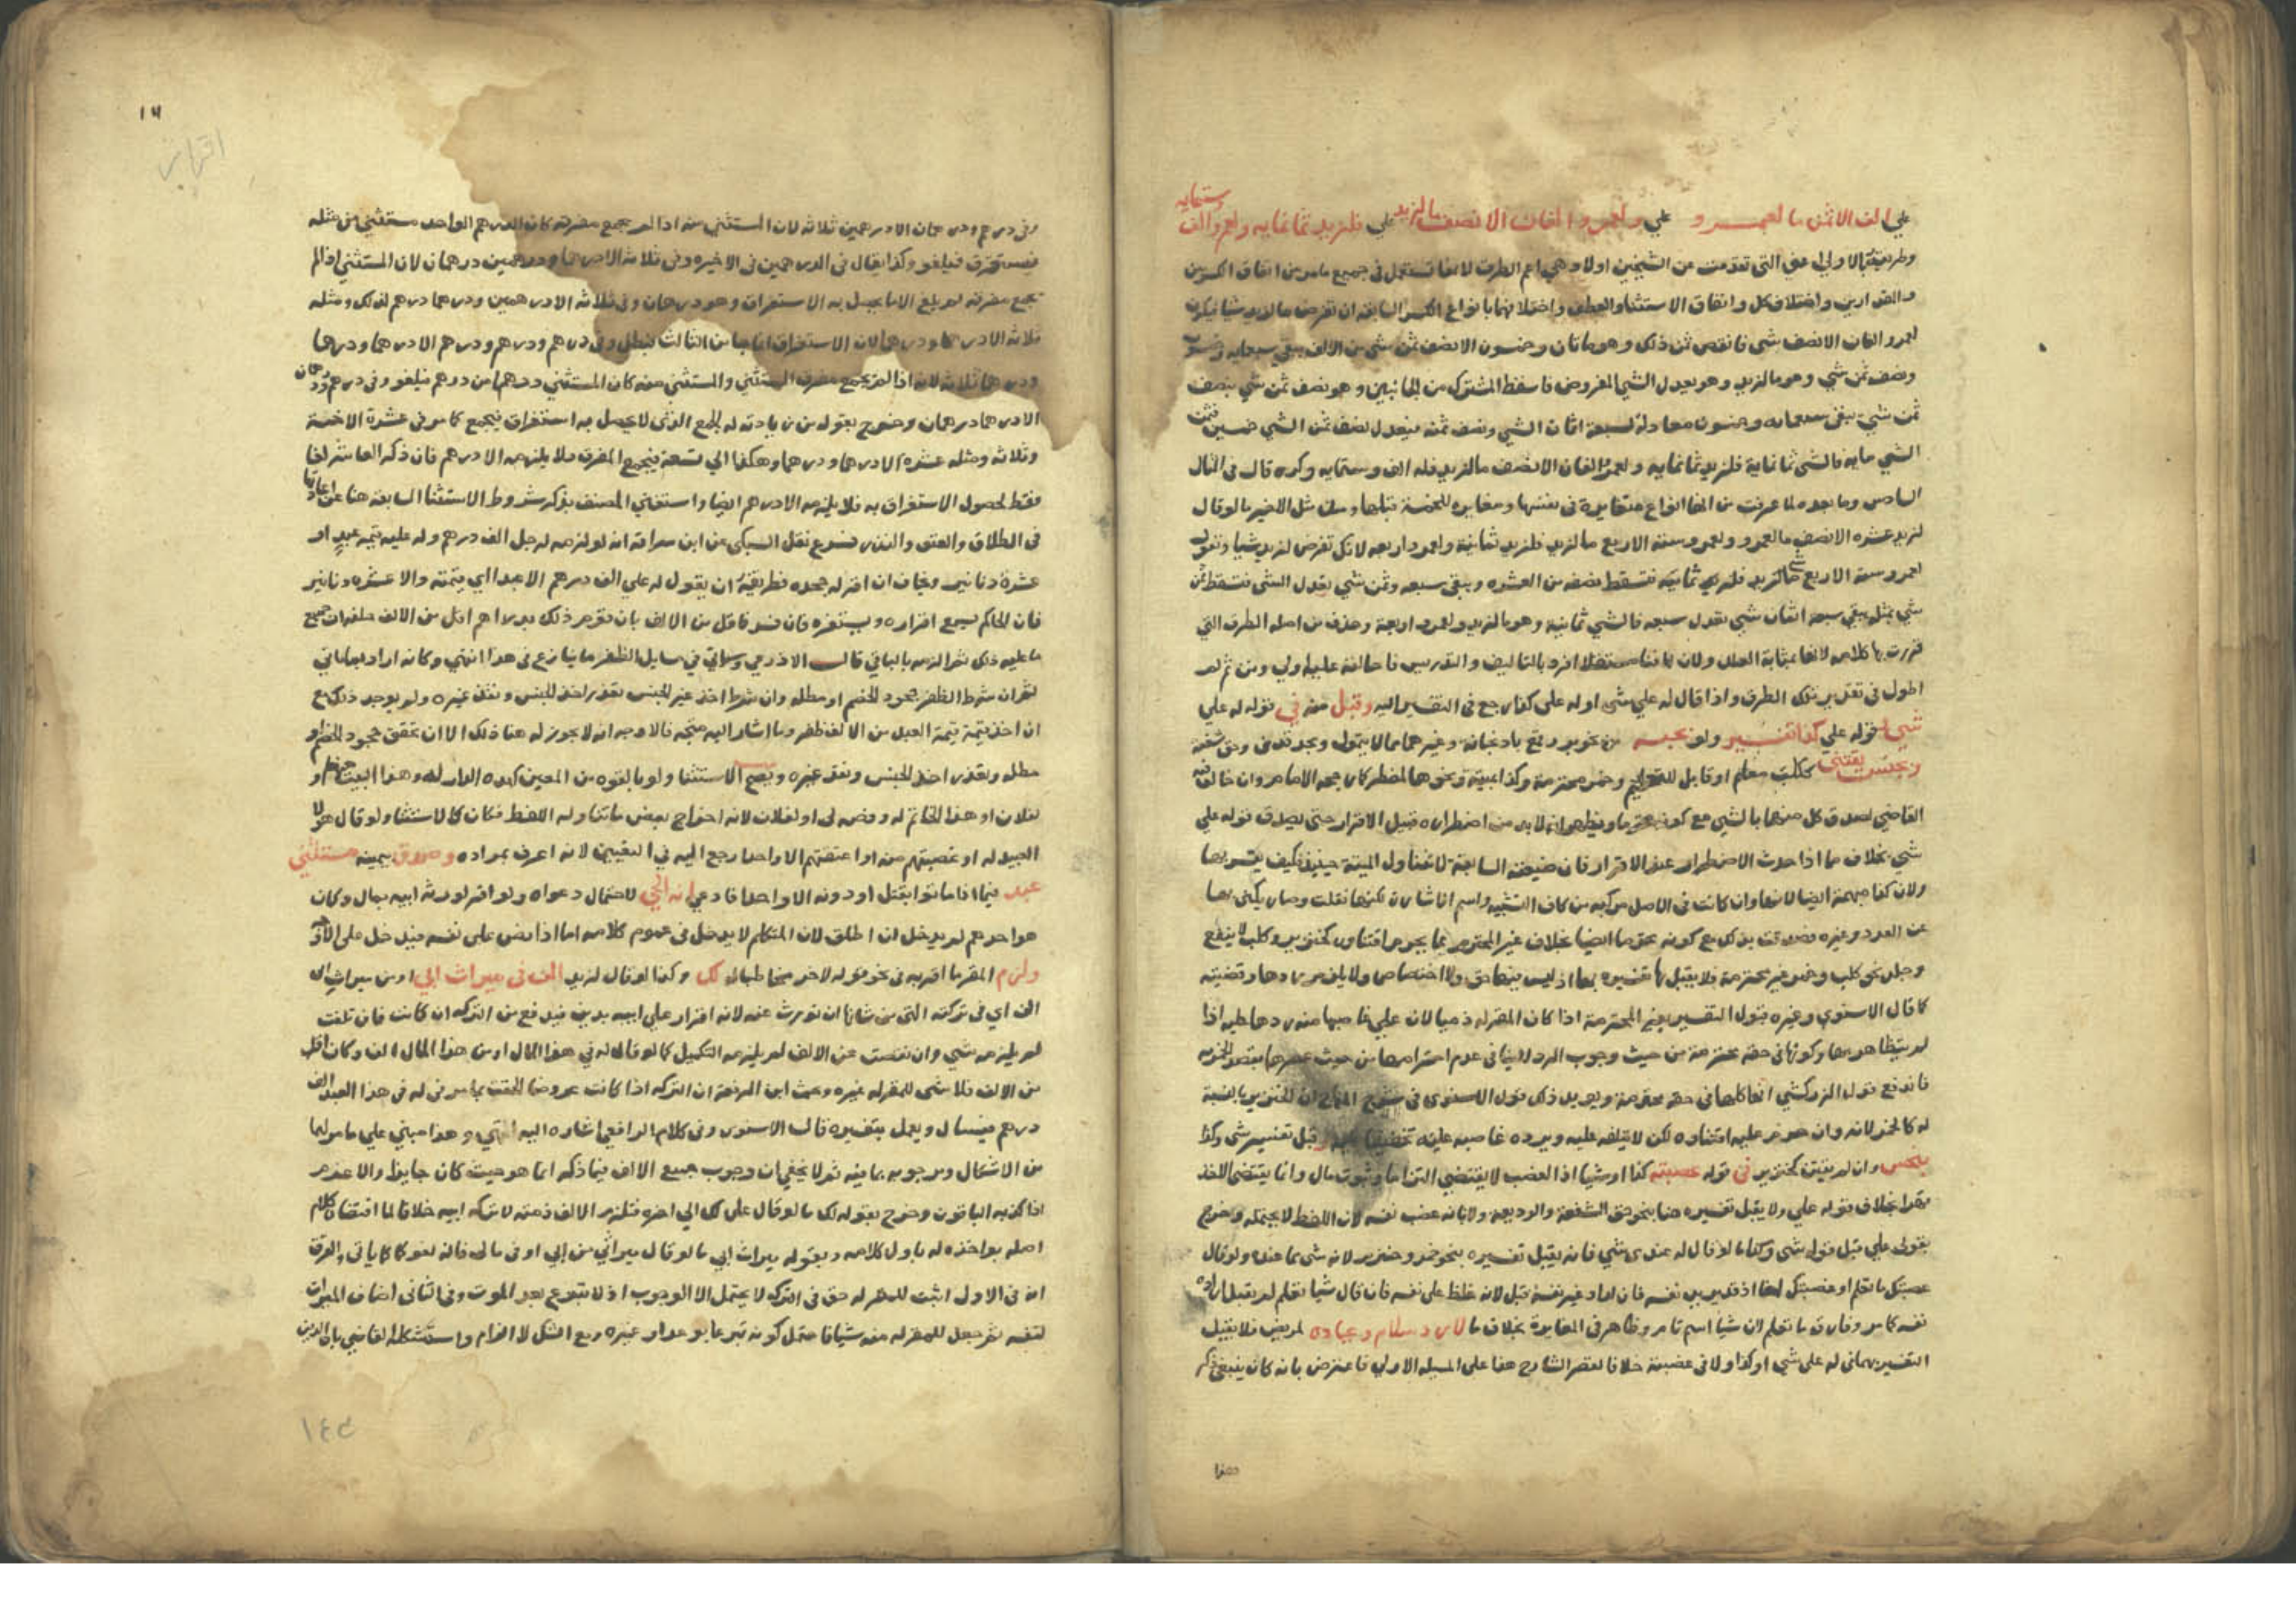 علي الف الا ثمن ما لعمرو علي ولعمرو الفان الا نصف ما لزيد علي فلزيد ثمانمايه ولعمرو الف وستمايه
وطريقته الاولي هي التي تقدمت عن الشيخين اولا وهي اعم الطرق لانها تستعمل في جميع ما مر من اتفاق الكسرين
والقدرين واختلاف كل واتفاق الاستثنا والعطف واختلافهما بانواع الكسر السابقه ان تفرض ما لزيد شيا فيكون
لعمرو الفان الا نصف شي فانقص ثمن ذلك وهو مايتان وخمسون الا نصف ثمن شي من الالف يبقي سبعمايه وخمسون
ونصف ثمن شي وهو ما لزيد وهو يعدل الشي المفروض فاسقط المشترك من الجانبين وهو نصف ثمن شي بنصف
ثمن شي يبقي سبعمايه وخمسون معادلة لسبعة اثمان الشي ونصف ثمنه فيعدل نصف ثمن الشي خمسين فثمن
الشي مايه فالشي ثمانماية فلزيد ثمانمايه ولعمرو الفان الا نصف ما لزيد فله الف وستمايه وكرره قال في المثال
السادس وما بعده لما عرفت من انها انواع متغايرة في نفسها ومغايره للخمسة قبلها ومن مثل الاخير ما لو قال
لزيد عشره الا نصف ما لعمرو ولعمرو ستة الا ربع ما لزيد فلزيد ثمانية ولعمرو اربعه لانك تفرض لزيد شيا وتقول
لعمرو ستة الا ربع شي فتسقط نصفه من العشره يبقي سبعه وثمن شي يعدل الشي فتسقط ثمن
شي بمثله يبقي سبعة اثمان شي تعدل سبعه فالشي ثمانية وهو ما لزيد ولعمرو اربعة وحذف من اصله الطرق التي
قررت بها كلامه لانها بمثابة العلل ولان لها فنا مستقلا افرد بالتاليف والتدريس فاحالته عليه اولي ومن ثم لم
اطول في تقدير تلك الطرق واذا قال له علي شي او له علي كذا رجع في التفسير اليه وقبل منه في قوله له علي
شي او قوله علي كذا تفسير ولو بحبه من نحو بر وقمع باذنجانه وغيرهما مما لا يتمول وبحد قذف وحق شفعة
ونجس يقتني ككلب معلم او قابل للتعليم وخمر محترمة وكذا ميتة ونحوها لمضطر كما رجحه الامام وان خالفه
القاضي لصدق كل منها بالشي مع كونه محترما ويظهر انه لا بد من اضطراره قبيل الاقرار حتي يصدق قوله علي
شي بخلاف ما اذا حدث الاضطرار عند الاقرار فان صيغته السابقة لا تتناول الميتة حينئذ فكيف يفسر بها
ولان كذا مبهمة ايضا لانها وان كانت في الاصل مركبه من كاف التشبيه واسم الاشارة لكنها نقلت وصار يكني بها
عن العدد وغيره فصدقت بذلك مع كونه محترما ايضا بخلاف غير المحترم مما يحرم اقتناوه كخنزير وكلب لا ينفع
وجلد نحو كلب وخمر غير محترمة فلا يقبل تفسيره بها اذ ليس فيها حق ولا اختصاص ولا يلزم ردها وقضيته
كما قال الاسنوي وغيره قبول التفسير بغير المحترمة اذا كان المقر له ذميا لان علي غاصبها منه ردها عليه اذا
لم يتظاهر بها وكونها في حقه محترمة من حيث وجوب الرد لا ينافي عدم احترامها من حيث عصرها بقصد الخمريه
فاندفع قول الزركشي انها كلها في حقه محترمة ويويد ذلك قول الاسنوي في شرح المنهاج ان الخنزير بالنسبة
له كالخمر لانه وان حرم عليه اقتناوه لكن لا يتلفه عليه ويرده غاصبه عليه وقبل تفسير شي وكذا
بنجس وان لم يقتن كخنزير في قوله غصبته كذا او شيا اذ الغصب لا يقتضي التزاما وثبوت مال وانما يقتضي الاخذ
قهرا بخلاف قوله علي ولا يقبل تفسيره هنا بنحو حق الشفعة والوديعة ولا بانه غصب نفسه لان اللفظ لا يحتمله وخرج
بقولي علي قبل قوله شي وكذا ما لو قال له عندي شي فانه يقبل تفسيره بنحو خمر وخنزير لانه شي مما عنده ولو قال
غصبتك ما تعلم او غصبتك لغا اذ قد يريد نفسه فان اراد غير نفسه قبل لانه غلظ علي نفسه فان قال شيا تعلم لم يقبل ارادة
نفسه كما مر وفارق ما تعلم لان شيا اسم تام وظاهر في المغايرة بخلاف ما لا برد سلام وعياده لمريض فلا يقبل
التفسير بهما في له علي شي او كذا ولا في غصبته خلافا لبعض الشارح هنا علي المسيله الاولي فاعترض بانه كان ينبغي ذكر
هذا
اقرار
وفي درهم ودرهمان الا درهمين ثلاثه لان المستثني منه اذا لم يجمع مفرقه كان الدرهم الواحد مستثني من مثله
فيستغرق فيلغو وكذا يقال في الدرهمين في الاخيره وفي ثلاثة الا درهما ودرهمين درهمان لان المستثني اذا لم
يجمع مفرقه لم يلغ الا ما يحصل به الاستغراق وهو درهمان وفي ثلاثة الا درهمين ودرهما درهم لذلك ومثله
ثلاثة الا درهما ودرهما لان الاستغراق انما جا من الثالث فبطل وفي درهم ودرهم ودرهم الا درهما ودرهما
ودرهما ثلاثه لانه اذا لم يجمع مفرق المستثني والمستثني منه كان المستثني درهما من درهم فيلغو وفي درهم ودرهمان
الا درهما درهمان وخرج بقوله من زيادته له الجمع الذي لا يحصل به استغراق فيجمع كما مر في عشرة الا خمسة
وثلاثه ومثله عشره الا درهما ودرهما وهكذا الي تسعة فيجمع المفرق فلا يلزمه الا درهم فان ذكر العاشر لغا
فقط لحصول الاستغراق به فلا يلزمه الا درهم ايضا واستغني المصنف بذكر شروط الاستثنا السابقه هنا عن اعادتها
في الطلاق والعتق والنذر فرع نقل السبكي عن ابن سراقة انه لو لزمه لرجل الف درهم وله عليه قيمه عبد او
عشرة دنانير ويخاف ان اقر له جحده فطريقه ان يقول له علي الف درهم الا عبدا اي قيمته والا عشره دنانير
فان الحاكم يسمع اقراره ويستفسره فان فسر فاقل من الالف بان قوم ذلك بدراهم اقل من الالف حلف ان جميع
ما عليه ذلك ثم الزمه بالباقي قال الاذرعي وسياتي في مسايل الظفر ما ينازع في هذا انتهي وكانه اراد بما ياتي
لقران شرط الظفر جحود الخصم او مطله وان شرط اخذ غير الجنس تعذر اخذ الجنس وفقد غيره ولم يوجد ذلك مع
ان اخذ قيمة قيمة العبد من الالف ظفر وما اشار اليه متجه فالاوجه انه لا يجوز له هنا ذلك الا ان تحقق جحود الخصم او
مطله وتعذر اخذ الجنس وفقد غيره ويصح الاستثنا ولو بالقوه من المعين كهذه الدار له وهذا البيت منها او
لفلان او هذا الخاتم له وفصه لي او لفلان لانه اخراج بعض ما تناوله اللفظ فكان كالاستثنا ولو قال هولا
العبيد له او غصبتهم منه او اعتقتهم الا واحدا رجع اليه في التعيين لانه اعرف بمراده وصدق بيمينه مستثني
عبد فيما اذا ماتوا بقتل او دونه الا واحدا فادعي انه الحي لاحتمال دعواه ولو اقر لورثة ابيه بمال وكان
هو احدهم لم يدخل ان اطلق لان المتكلم لا يدخل في عموم كلامه اما اذا نص علي نفسه فيدخل علي الاوجه
ولزم المقر ما اقر به في نحو قوله لاخر مخاطبا له لك وكذا لو قال لزيد الف في ميراث ابي او من ميراث ابي
الف اي في تركته التي من شانها ان تورث عنه لانه اقرار علي ابيه بدين فيدفع من التركه ان كانت فان تلفت
لم يلزمه شي وان نقصت عن الالف لم يلزمه التكميل كما لو قال له في هذا المال او من هذا المال الف وكان اقل
من الالف فلا شي للمقر له غيره وبحث ابن الرفعة ان التركه اذا كانت عروضا التحقت بما مر في له في هذا العبد الف
درهم فيسال ويعمل بتفسيره قال الاسنوي وفي كلام الرافعي اشاره اليه انتهي وهذا مبني علي ما مر لهما
من الاشكال ومر جوابه بما فيه ثم لا يخفي ان وجوب جميع الالف فيما ذكر انما هو حيث كان حايزا والا غرم
اذا كذبه الباقون وخرج بقوله لك ما لو قال علي لك الي اخره فتلزم الالف ذمته لا تركه ابيه خلافا لما اقتضاه كلام
اصله بواخذه له باول كلامه وبقوله ميراث ابي ما لو قال ميراثي من ابي او في مالي فانه لغو كما ياتي والفرق
انه في الاول اثبت للمقر له حق في التركه لا يحتمل الا الوجوب اذ لا تبرع بعد الموت وفي الثاني اضاف الميراث
لنفسه ثم جعل للمقر له منه شيا فاحتمل كونه تبرعا بوعد او غيره ومع الشك لا الزام واستشكله القاضي بان الدين